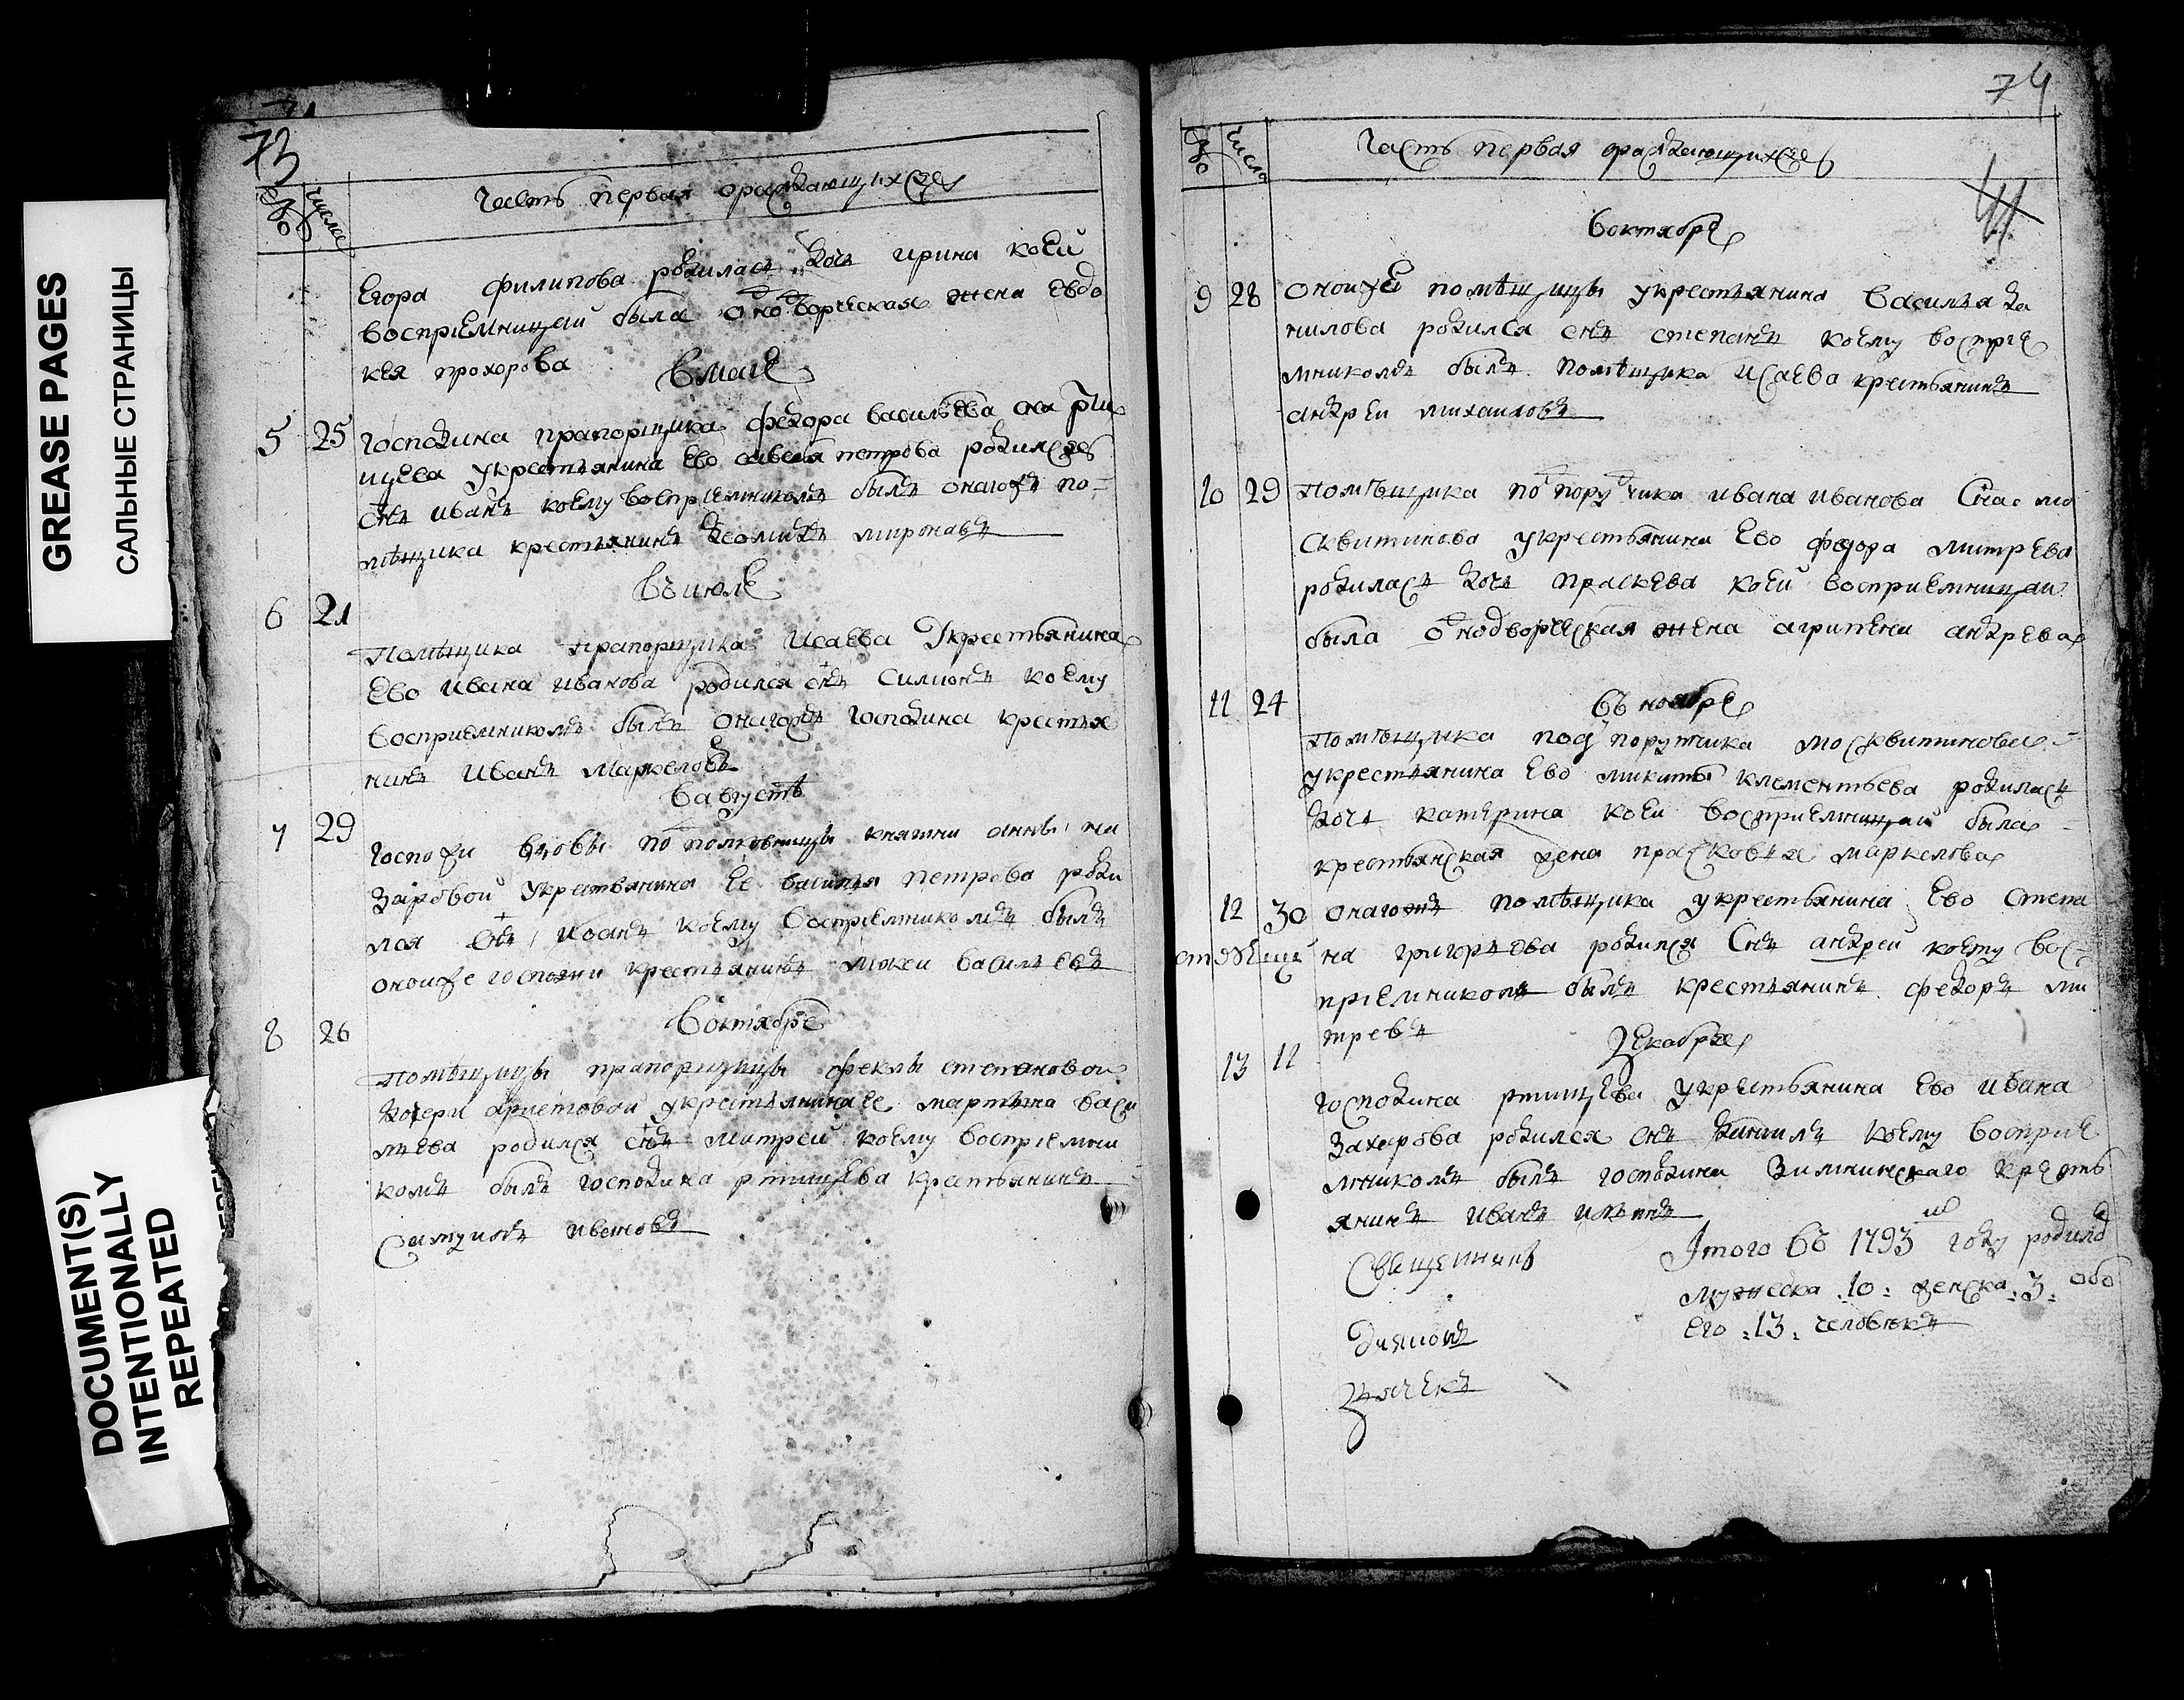 GREASE PAGES
САЛЬНЫЕ СТРАНИЦЫ
DOCUMENT(S)
INTENTIONALLY
REPEATED
73
№ число
Часть первая ораждающихся
Егора филипова родилась дочь ирина коей
восприемницей была однодворческая жена евдо
кея прохорова
В маие
5 25 господина прапорщика федора васильева сна рти
щева укрестьянина ево савелья петрова родился
снъ иванъ коему восприемникомъ былъ онагожъ по-
мѣщика крестьянинъ миронавъ
Въ июле
6 21
Помѣщика прапорщика Исаева Укрестьянина
Ево ивана иванова родился снъ Симионъ коему
восприемникомъ былъ онагожъ господина крестья
нинъ Иванъ маркеловъ
Вавгустѣ
7 29
госпожи вдовы подполковницы княжни анны на
заровой укрестьянина Ее василья петрова роди
лся снъ иоанъ коему восприемникомъ былъ
оноиже госпожи крестьянинъ мокеи васильевъ
Воктябре
8 26
помѣщицы прапорщицы феклы степановой
дочери аристовой укрестьянина ее мартына васи
льева родился снъ митрей коему восприемни
комъ былъ господина ртищева крестьянинъ
Симионъ ивановъ
74
№ Число
Часть первая ораждающихся
41
Воктябре
9 28 оноиже помѣщицы укрестьянина василья да
нилова родился снъ степанъ коему восприе
мникомъ былъ помѣщика исаева крестьянинъ
андреи михаиловъ
10 29 Помѣщика подпоручика ивана иванова Сна мо
сквитинова укрестьянина Ево федора митрева
родилась дочь праскева коей восприемницаи
была однодворческая жена агрипена андрева
Въ ноябре
11 24
помѣщика подпоручика москвитинова
укрестьянина Ево микиты клементьева родилась
дочь катерина коеи восприемницаи была
крестьянская жена прасковья маркелова
12 30 онагожъ помѣщика укрестьянина Ево степа
на григорьева родился Снъ андреи коему вос-
приемникомъ былъ крестьянинъ федоръ ми
тревъ
Декабря
13 11
господина ртищева укрестьянина Ево ивана
Захарова родился снъ данилъ коему восприе
мникомъ былъ господина Зимнинскаго кресть
янинъ иванъ
Священникъ
Диаконъ
Дьячекъ
Итого въ 1793 м году родилос
мужеска :10: женска :3: обо
его :13: человѣкъ